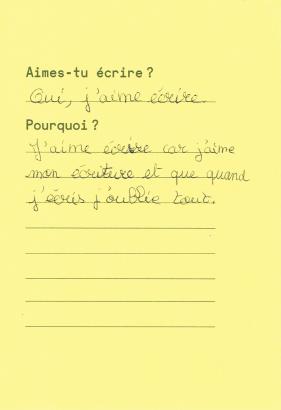 Aimes-tu écrire ?
Oui, j'aime écrire.
Pourquoi ?
J'aime écrire car j'aime
mon écriture et que quand
j'écris j'oublie tout.